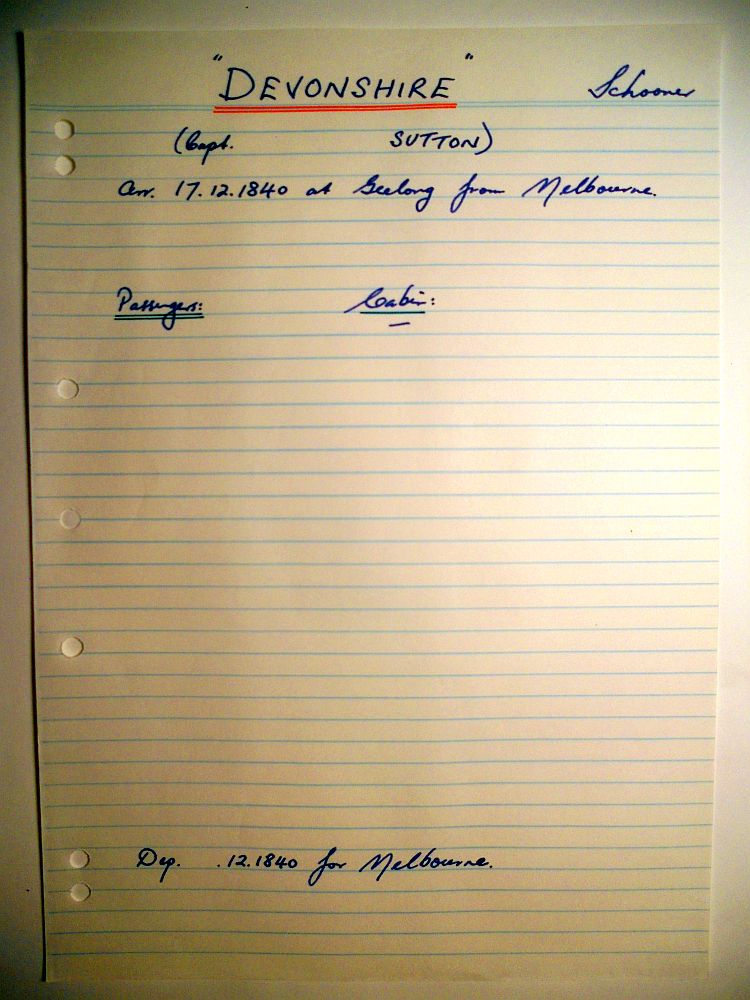 "DEVONSHIRE" Schooner
(Capt. SUTTON)
Arr. 17.12.1840 at Geelong from Melbourne.
Passengers: Cabin:
—
Dep. .12.1840 for Melbourne.